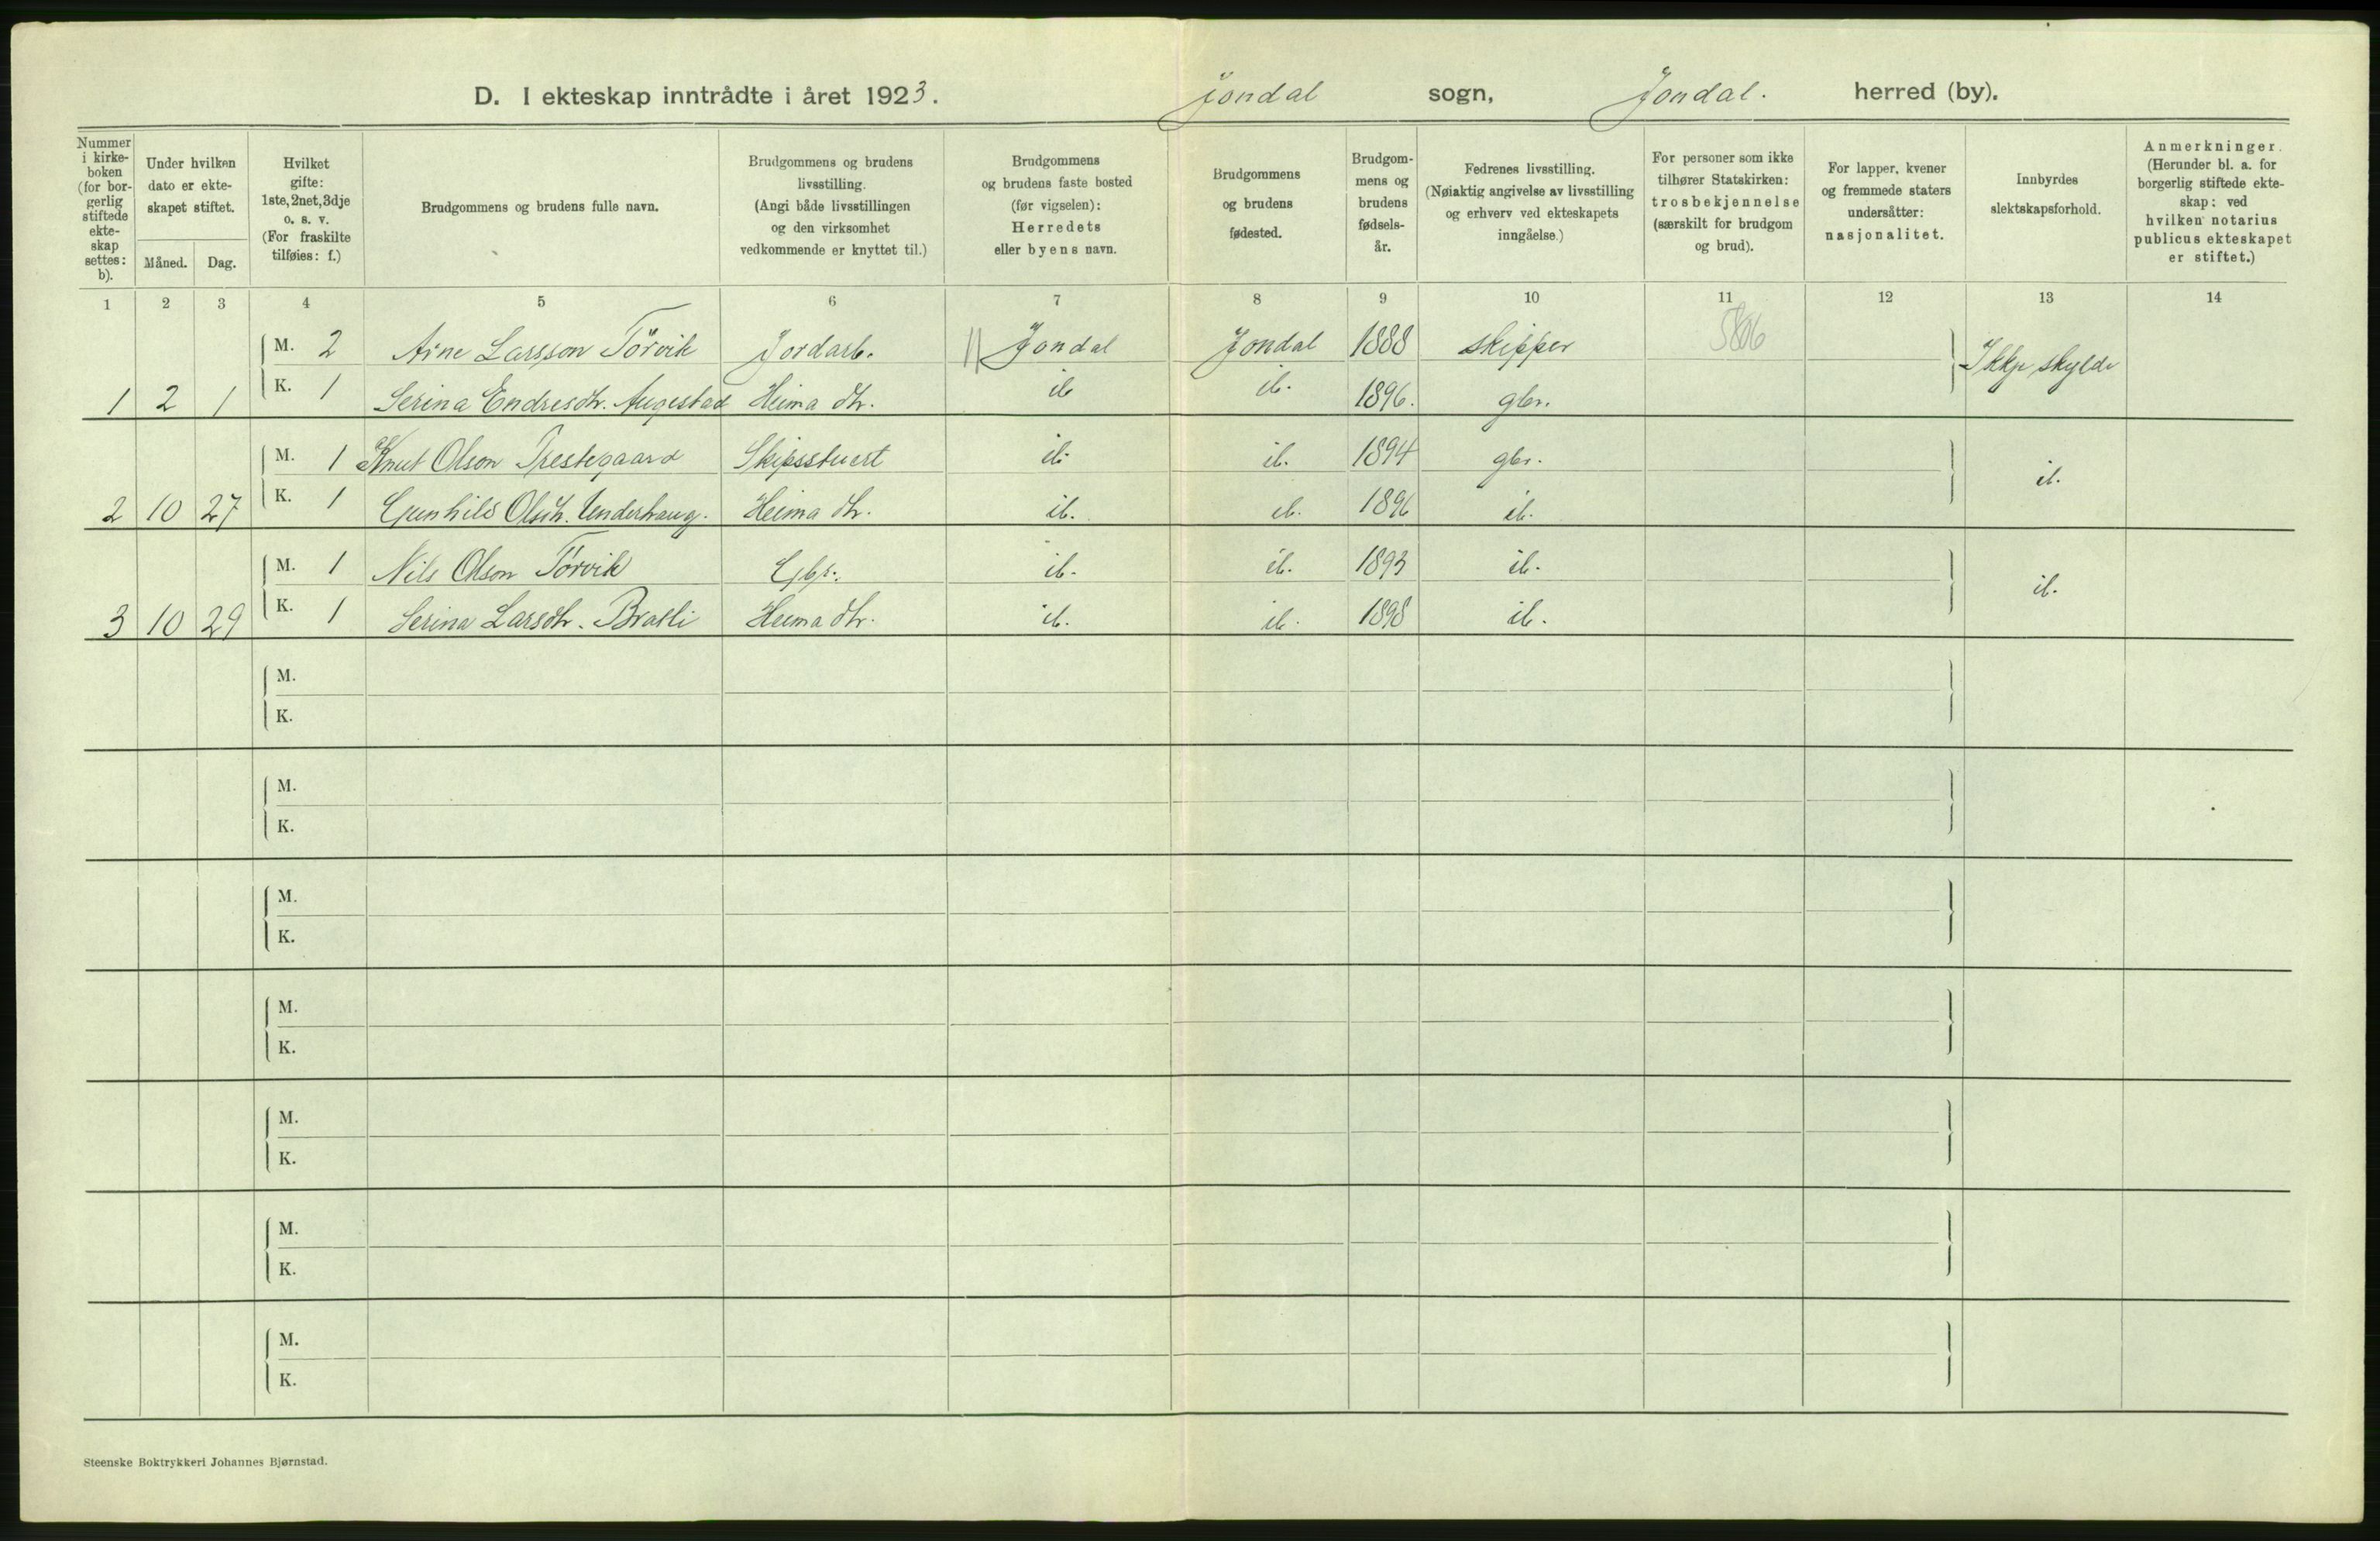 D. I ekteskap inntrådte i året 1923. Jondal sogn, Jondal. herred (by).
Nummer i kirkeboken (for borgerlig stiftede ekteskap settes: b).
Under hvilken dato er ekteskapet stiftet.
Måned. Dag.
Hvilket gifte: 1ste, 2net, 3dje o. s. v. (For fraskilte tilføies: f.)
Brudgommens og brudens fulle navn.
Brudgommens og brudens livsstilling. (Angi både livsstillingen og den virksomhet vedkommende er knyttet til.)
Brudgommens og brudens faste bosted (før vigselen): Herredets eller byens navn.
Brudgommens og brudens fødested.
Brudgommens og brudens fødselsår.
Fedrenes livsstilling. (Nøiaktig angivelse av livsstilling og erhverv ved ekteskapets inngåelse.)
For personer som ikke tilhører Statskirken: trosbekjennelse (særskilt for brudgom og brud).
For lapper, kvener og fremmede staters undersåtter: nasjonalitet.
Innbyrdes slektskapsforhold.
Anmerkninger. (Herunder bl. a. for borgerlig stiftede ekteskap: ved hvilken notarius publicus ekteskapet er stiftet.)
1 2 3 4 5 6 7 8 9 10 11 12 13 14
M. 2 Arne Larsson Törvik Jordarb. Jondal Jondal 1888 skipper Ikkje skylde
1 2 1 K. 1 Serina Endresdtr. Augestad Heima dtr. ib ib. 1896. gbr.
M. 1 Knut Olson Prestegaard Skipsstuert ib. ib. 1894 gbr. ib.
2 10 27 K. 1 Gunhild Olsdtr. Underhaug. Heima dtr. ib. ib. 1896 ib.
M. 1 Nils Olson Törvik Gbr. ib. ib. 1893 ib. ib.
3 10 29 K. 1 Serina Larsdtr. Bratli Heima dtr. ib. ib. 1898 ib.
M.
K.
M.
K.
M.
K.
M.
K.
M.
K.
M.
K.
M.
K.
Steenske Boktrykkeri Johannes Bjørnstad.